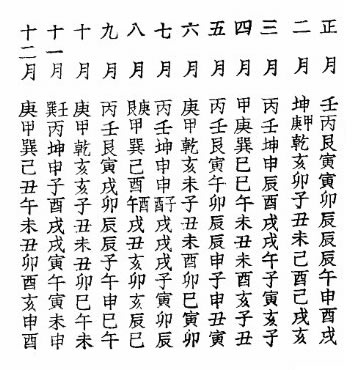 正月 壬丙艮寅寅卯辰辰辰午申酉戌
二月 坤甲庚乾亥卯子丑未己酉己戌亥
三月 丙壬坤申辰酉戌戌午子寅亥子
四月 甲庚巽巳巳午未丑申酉亥子丑
五月 丙壬艮寅午卯辰辰申戌申丑寅
六月 庚甲乾亥未子丑未酉卯巳寅卯
七月 丙壬坤申申子酉戌戌子寅卯辰
八月 庚艮甲巽己酉酉午戌丑亥卯辰巳
九月 丙壬艮寅戌卯辰辰子午申巳午
十月 庚甲乾亥亥子丑未丑卯巳午未
十一月 壬巽丙坤申子酉戌戌寅午寅未申
十二月 庚甲巽己丑午未丑卯酉亥申酉